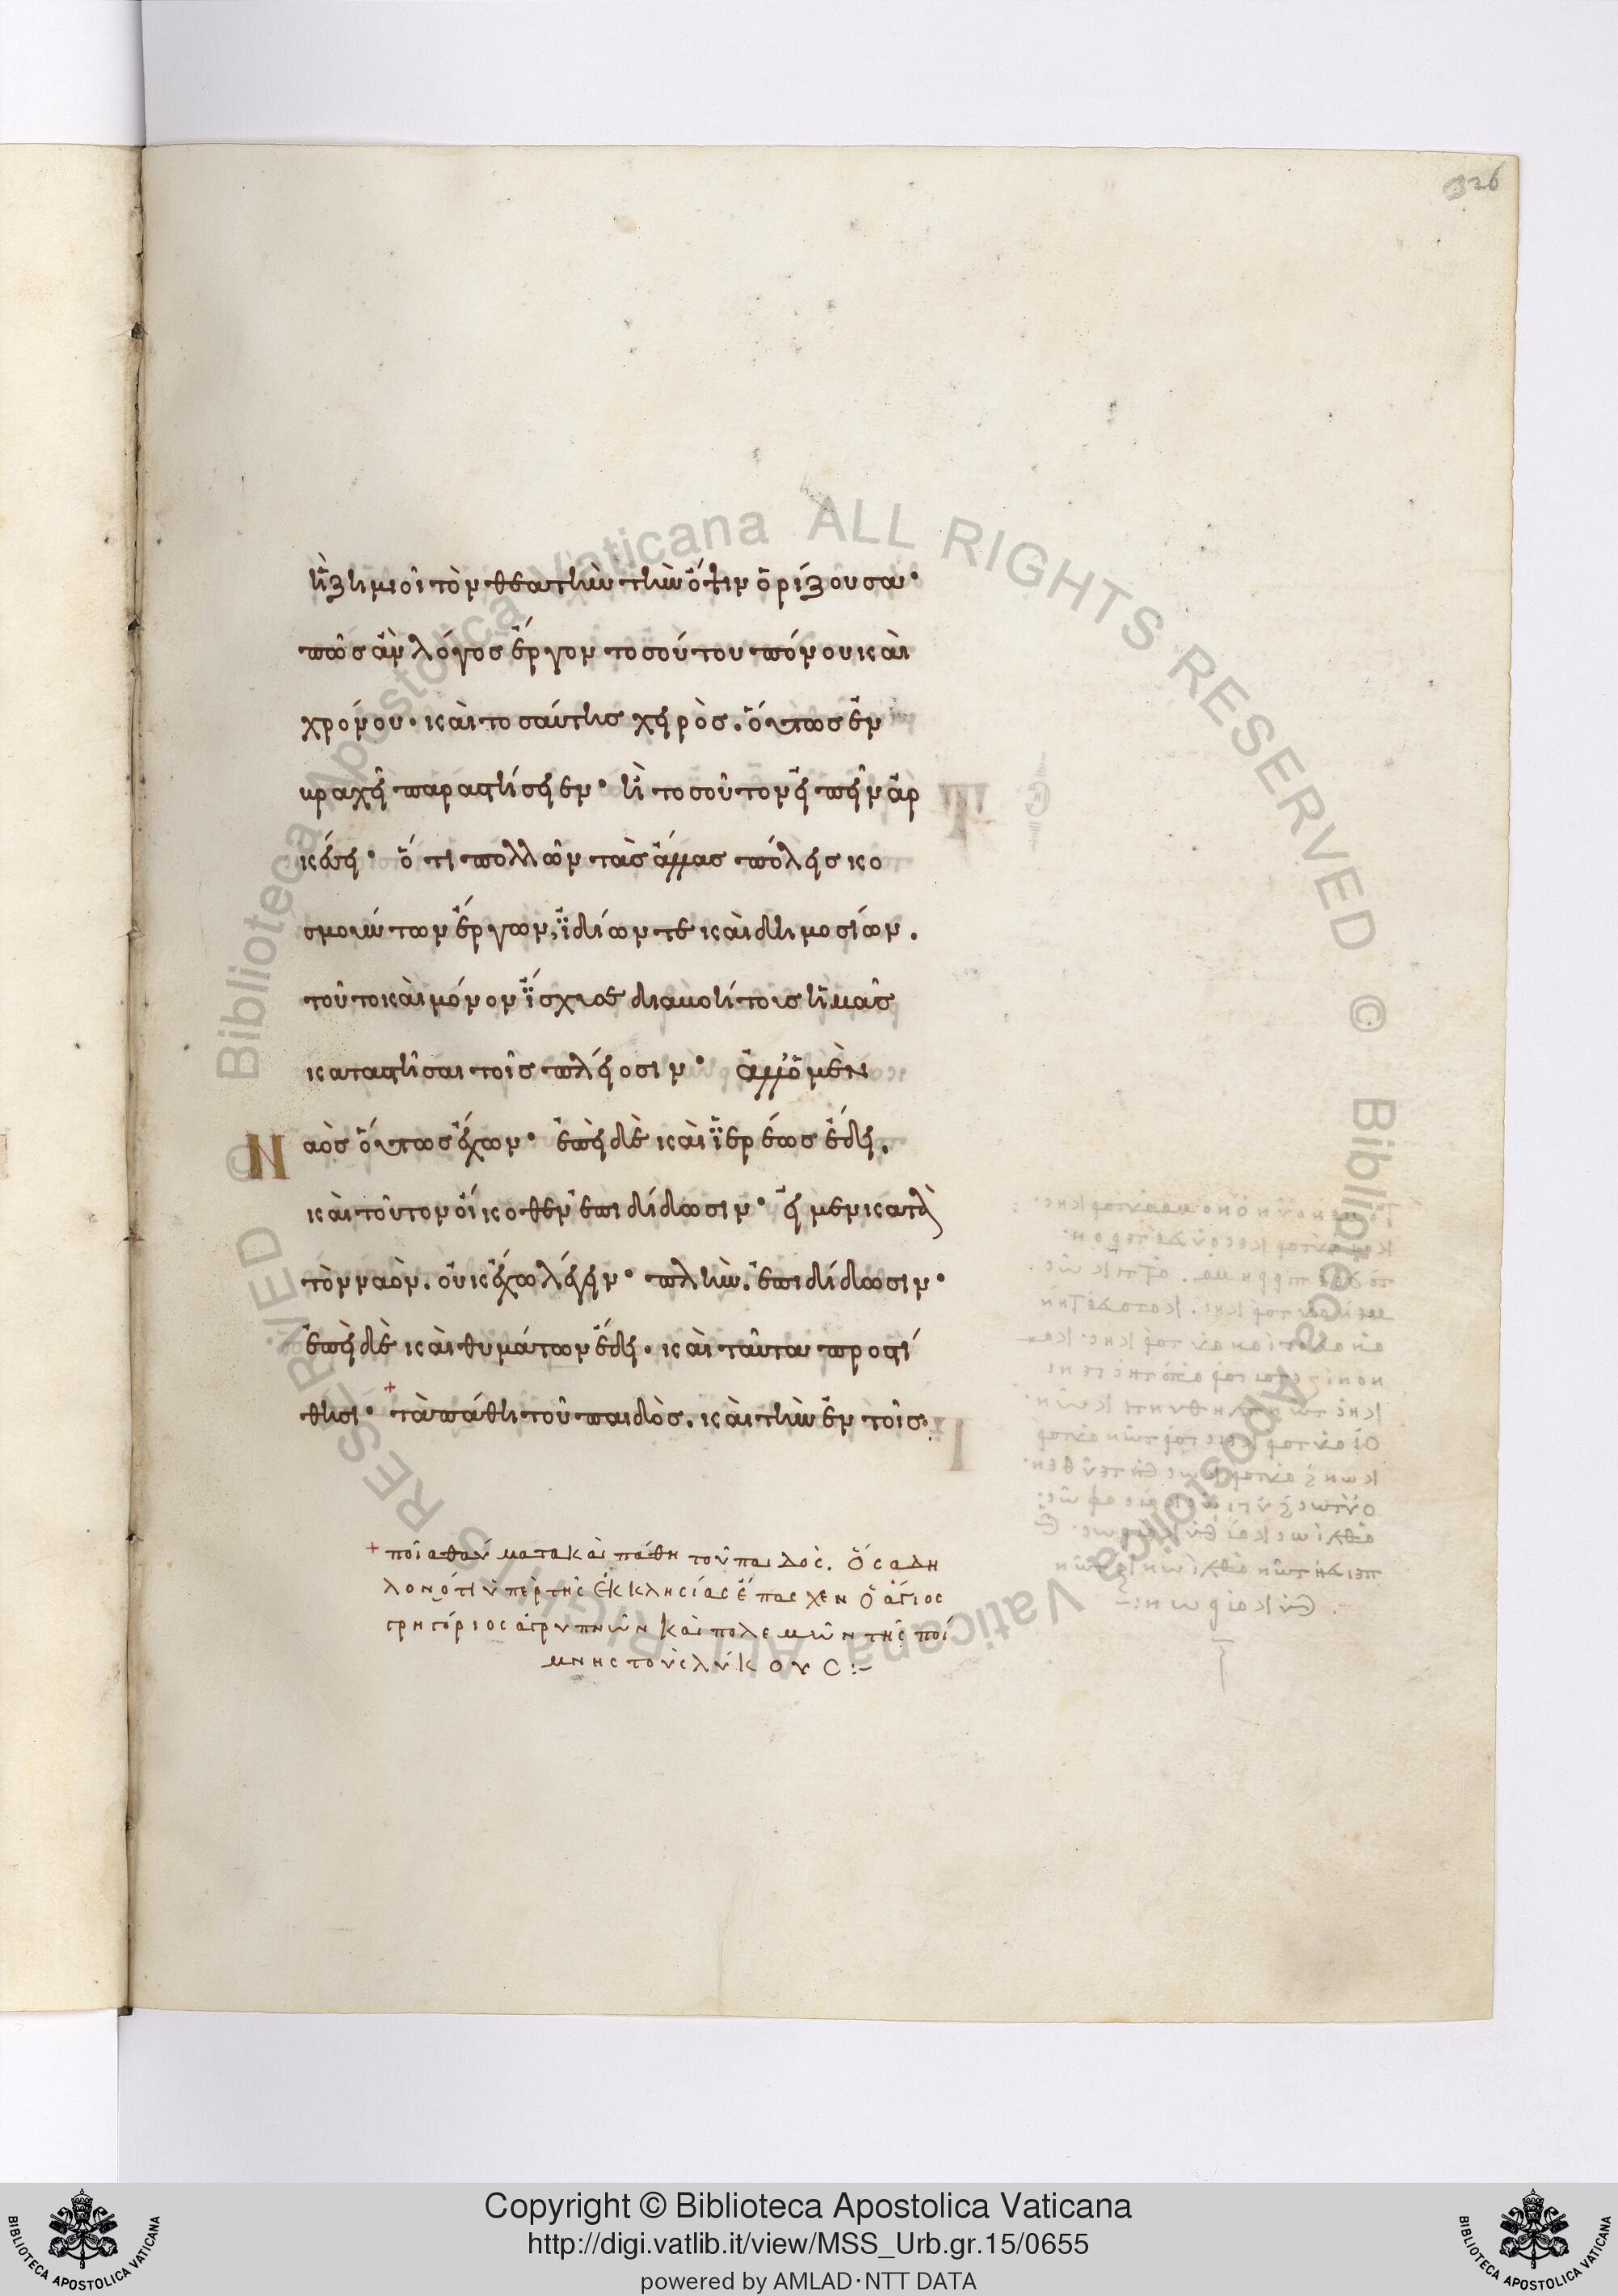 326
ἢ ζημιοῖ τὸν θεατὴν τὴν ὄψιν ὁρίζουσαν·
πῶς ἂν λόγος ἔργον τοσούτου πόνου καὶ
χρόνου· καὶ τοσαύτης χειρὸς. ὄντως ἐν
βραχεῖ παραστήσειεν· ἢ τοσοῦτον εἰπεῖν ἀρ
κέσει· ὅτι πολλῶν τὰς ἄλλας πόλεις κο
σμούντων ἔργων, ἰδίων τε καὶ δημοσίων.
τοῦτο καὶ μόνον ἴσχυσε διαβοήτοις ἡμᾶς
καταστῆσαι τοῖς πλείοσιν· ἀλλ' ὁ μὲν
Ναὸς οὕτως ἔχων· ἐπεὶ δὲ καὶ ἱερέως ἔδει.
καὶ τοῦτον οἴκοθεν ἐπιδίδωσιν· εἰ μὲν κατὰ
τὸν ναὸν. οὐκ ἔχω λέγειν· πλὴν. ἐπιδίδωσιν·
ἐπεὶ δὲ καὶ θυμάτων ἔδει. καὶ ταῦτα προστί
θησι· + τὰ πάθη τοῦ παιδὸς. καὶ τὴν ἐν τοῖς
+ ποῖα θαύματα καὶ πάθη τοῦ παιδὸς. ὅσα δη
λονότι ὑπὲρ τῆς ἐκκλησίας ἔπασχεν ὁ ἅγιος
γρηγόριος ἀγρυπνῶν καὶ πολεμῶν τῆς ποί
μνης τοὺς λύκους:–
Biblioteca Apostolica Vaticana ALL RIGHTS RESERVED ©
Copyright © Biblioteca Apostolica Vaticana
http://digi.vatlib.it/view/MSS_Urb.gr.15/0655
powered by AMLAD·NTT DATA
BIBLIOTECA APOSTOLICA VATICANA
BIBLIOTECA APOSTOLICA VATICANA